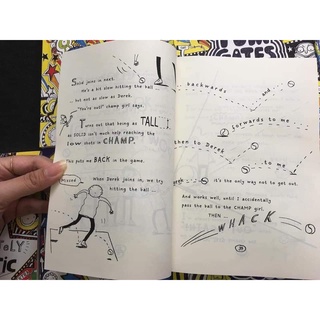 GATES
Solid joins in next.
He's a bit slow hitting the ball
but not as slow as Derek.
"You're out!" champ girl says.
Turns out that being as TALL
as SOLID isn't much help reaching the
low shots in CHAMP.
This puts me BACK in the game.
When Derek joins in, we try
hitting the ball
backwards and
forwards to me
then to Derek
to me
it's the only way not to get out.
And works well, until I accidentally
pass the ball to the CHAMP girl.
THEN
WHACK